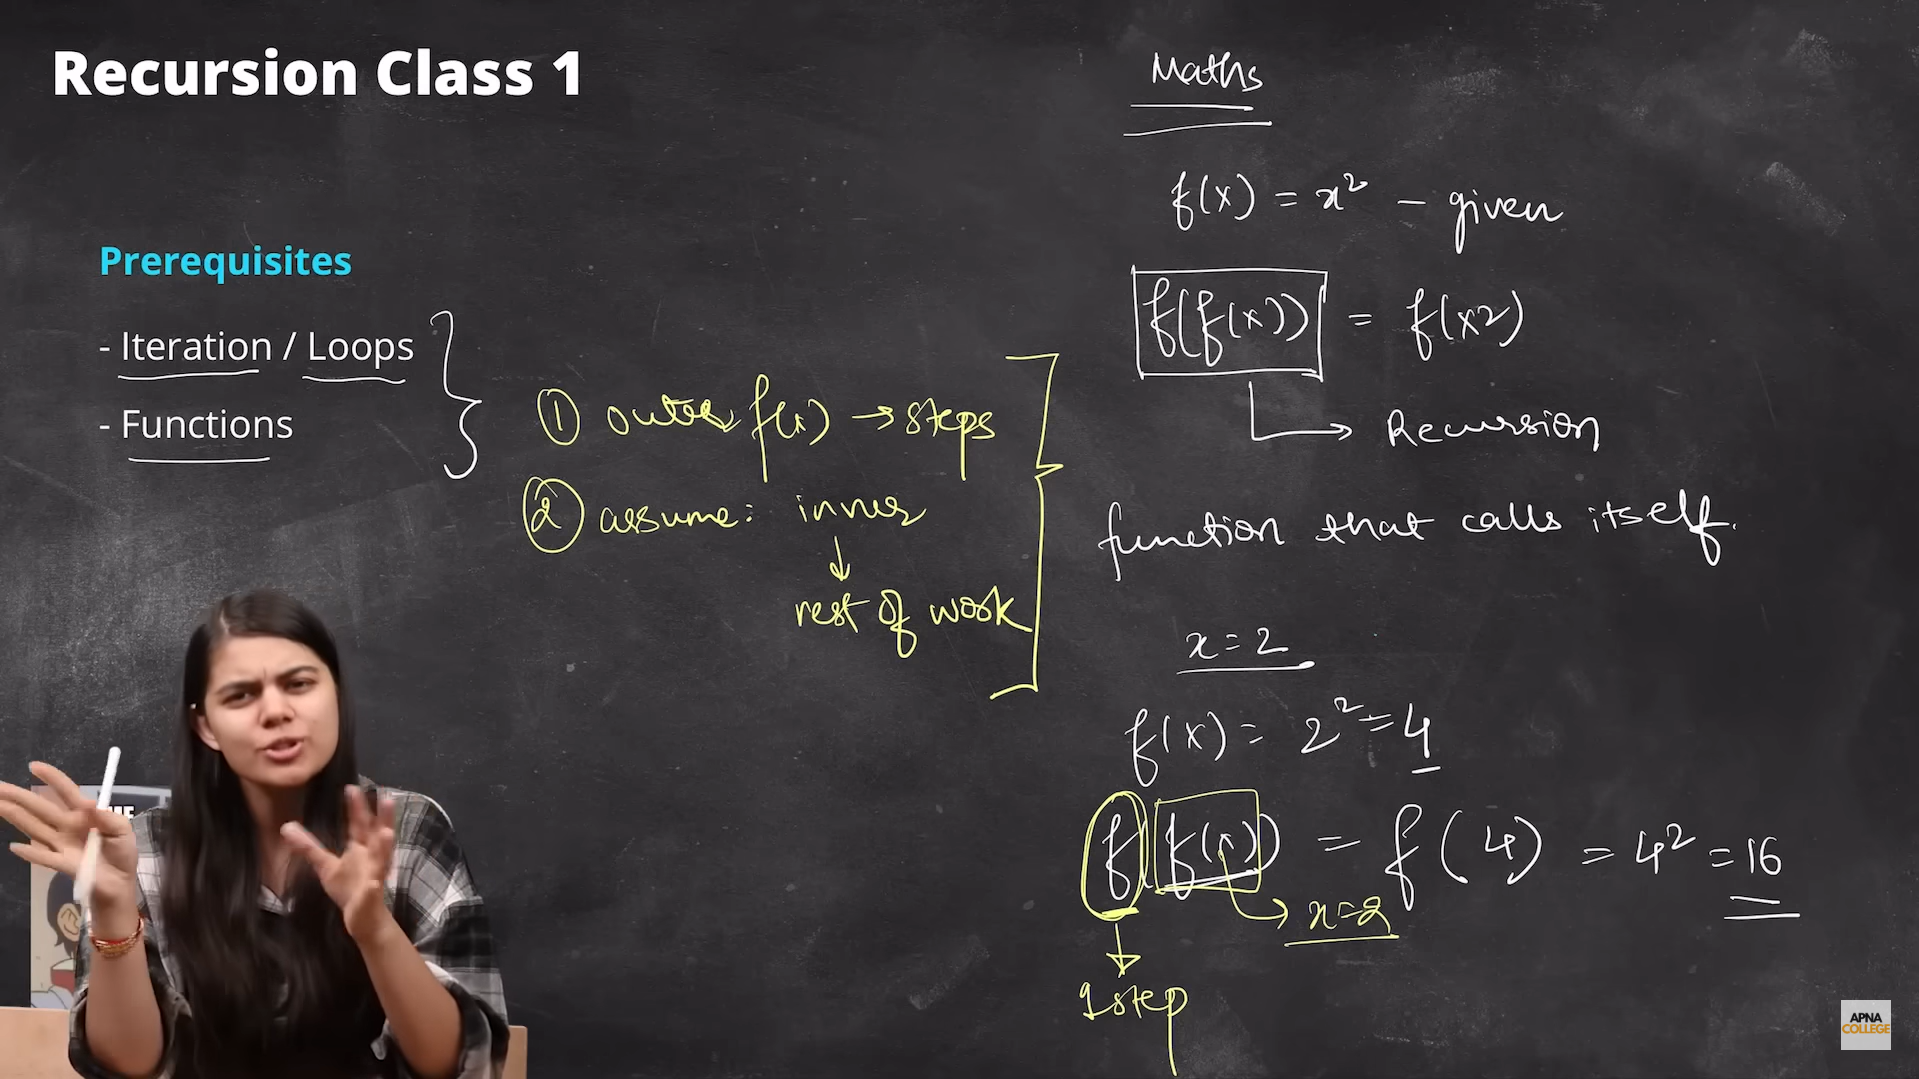 Recursion Class 1
Prerequisites
- Iteration / Loops
- Functions
① outer f(x) → steps
② assume: inner
↓
rest of work
Maths
f(x) = x² - given
f(f(x)) = f(x2)
→ Recursion
function that calls itself.
x = 2
f(x) = 2² = 4
f(f(x)) = f(4) = 4² = 16
→ x=2
↓
1step
APNA
COLLEGE